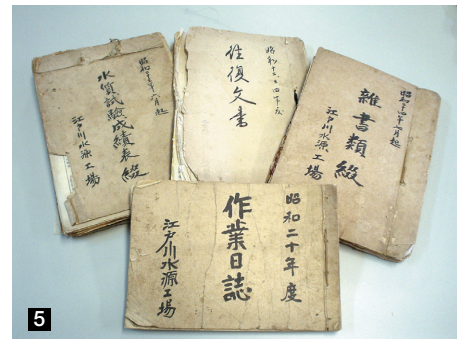 水質試驗成績表綴
江戸川水源工場
往復文書
雑書類綴
江戸川水源工場
昭和二十年度
作業日誌
江戸川水源工場
5